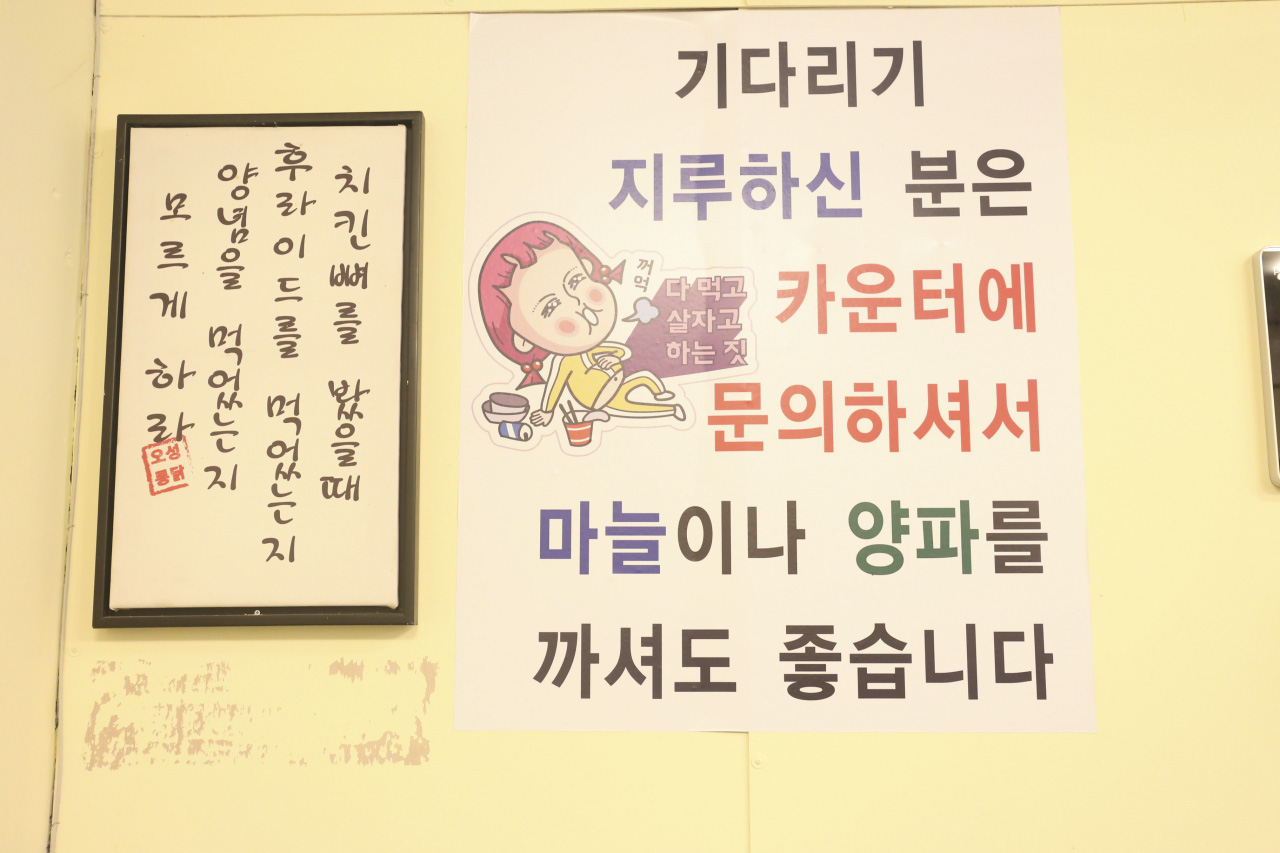 치킨뼈를 봤을때
후라이드를 먹었는지
양념을 먹었는지
모르게 하라
오성
통닭
기다리기
지루하신 분은
카운터에
문의하셔서
마늘이나 양파를
까셔도 좋습니다
꺼억
다 먹고
살자고
하는 짓